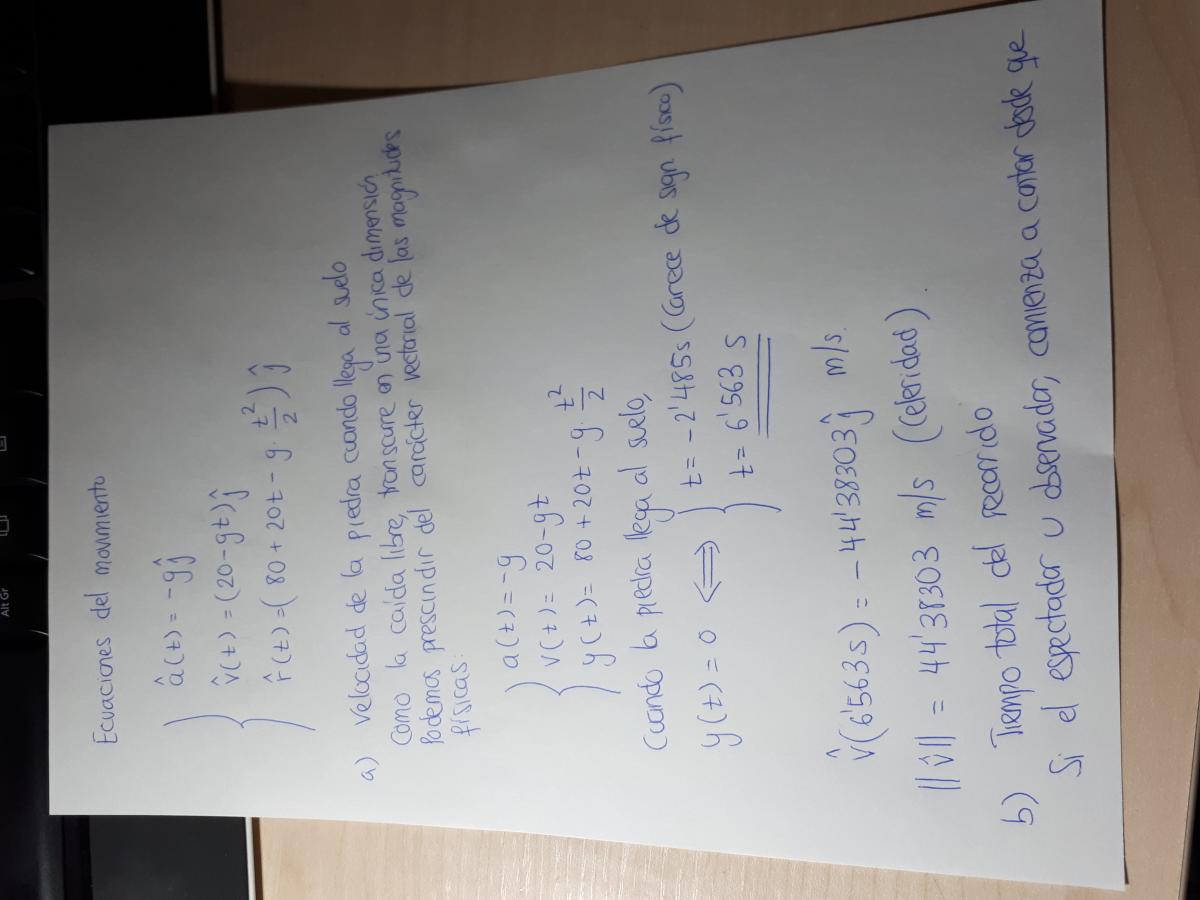 Alt Gr
Ecuaciones del movimiento
â(t) = -gĵ
v̂(t) = (20-gt)ĵ
r̂(t) = (80+20t-g·t²/2)ĵ
a) Velocidad de la piedra cuando llega al suelo
Como la caída libre, transcurre en una única dimensión
Podemos prescindir del carácter vectorial de las magnitudes
físicas:
a(t) = -g
v(t) = 20-gt
y(t) = 80+20t-g·t²/2
Cuando la piedra llega al suelo,
y(t) = 0 ⟺ } t = -2'485s (Carece de sign físico)
t = 6'563 s
v̂(6'563s) = -44'38303ĵ m/s.
||v̂|| = 44'38303 m/s (Celeridad)
b) Tiempo total del recorrido
Si el espectador u observador, comienza a contar desde que